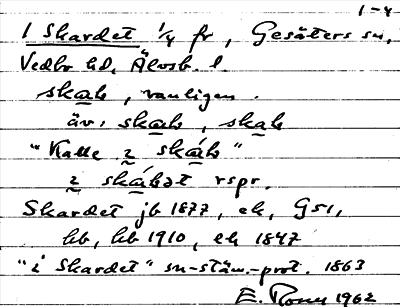 1-4
1 Skardet 1/4 fr, Gesäters sn,
Vedbo hd, Älvsb. l.
skah, vanligen.
äv. skah, skah
"Kalle i skáh"
i skáhət rspr.
Skardet jb 1877, ek, Gs1,
hb, hb 1910, ek 1847
"i Skardet" sn-stäm.-prot. 1863
E. 1962